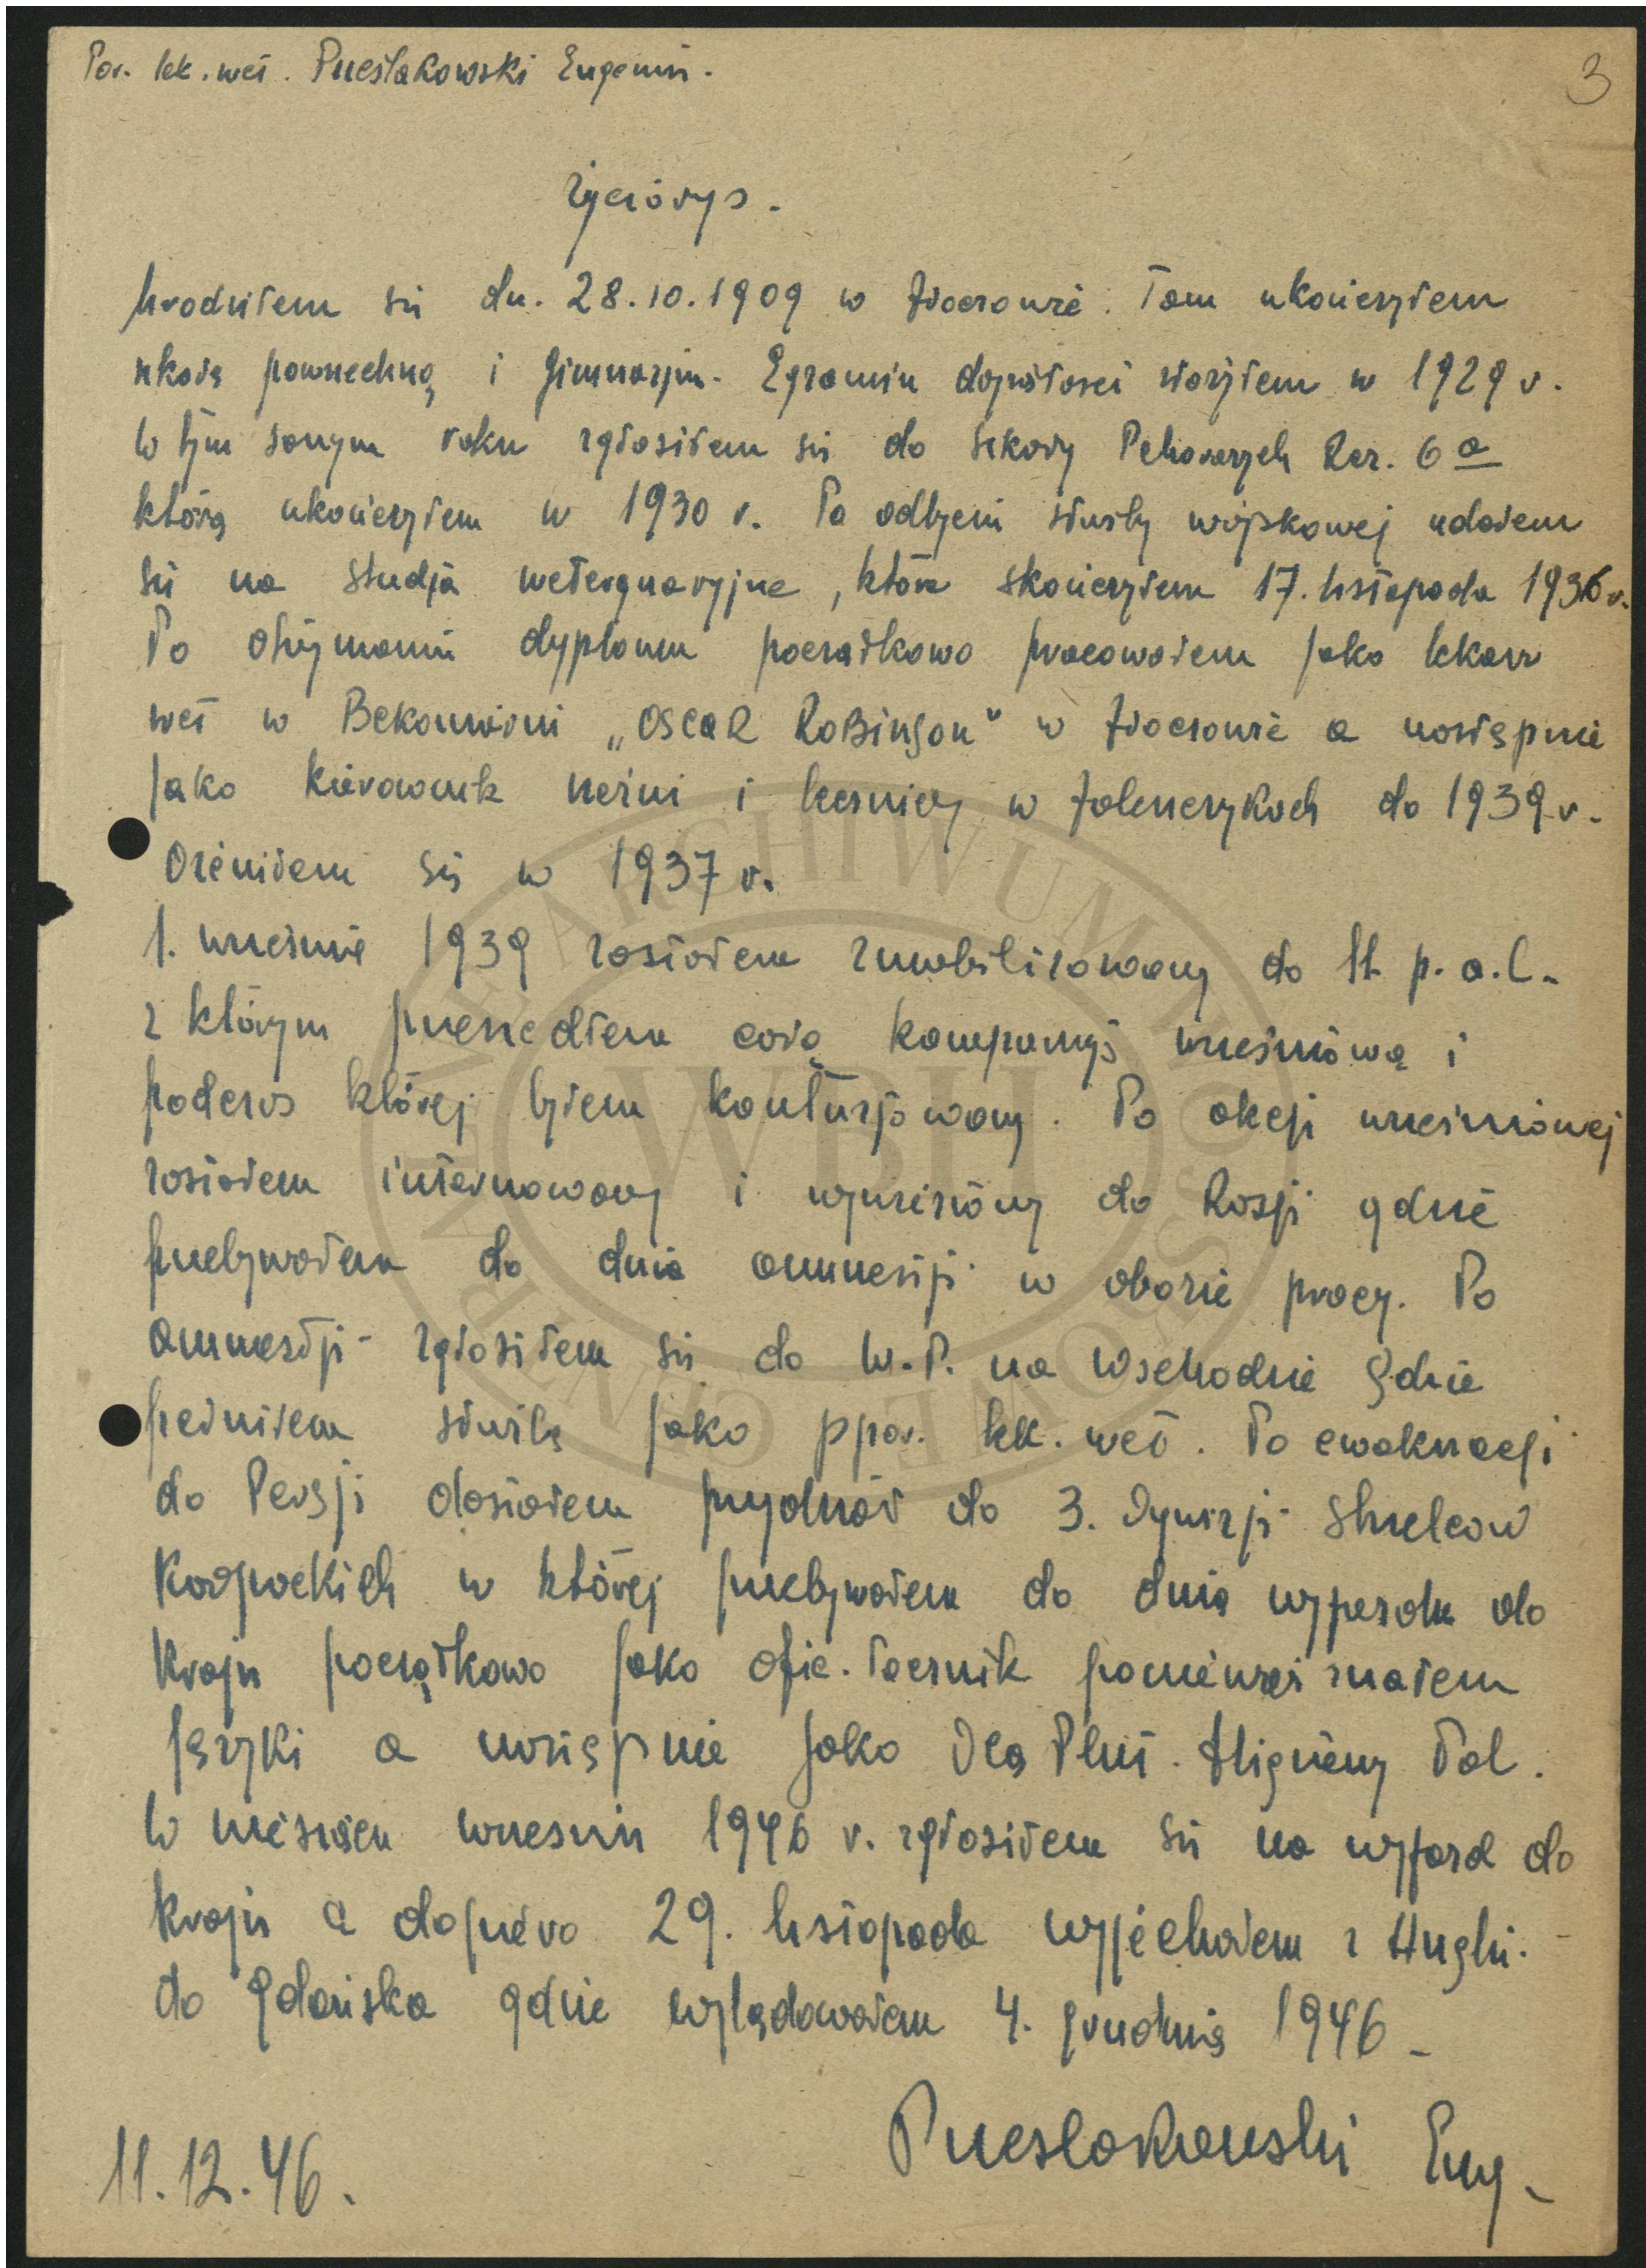 Por. lek. wet. Przesłakowski Eugeniusz.
3
Życiorys.
Urodziłem się dn. 28.10.1909 w Złoczowie. Tam ukończyłem
szkołę powszechną i gimnazjum. Egzamin dojrzałości złożyłem w 1929 r.
W tym samym roku zgłosiłem się do Szkoły Podchorążych Rez. 6 a
którą ukończyłem w 1930 r. Po odbyciu służby wojskowej udałem
się na studja weterynaryjne, które skończyłem 17. listopada 1936 r.
Po otrzymaniu dyplomu początkowo pracowałem jako lekarz
wet w Bekoniarni „OSCAR RoBinson" w Złoczowie a następnie
jako kierownik rzeźni i lecznicy w Zaleszczykach do 1939 r.
Ożeniłem się w 1937 r.
1. września 1939 zostałem zmobilizowany do 11. p.a.l.
z którym przeszedłem całą kampanję wrześniową i
podczas której byłem kontuzjowany. Po akcji wrześniowej
zostałem internowany i wywieziony do Rosji gdzie
przebywałem do dnia amnestji w obozie pracy. Po
amnestji zgłosiłem się do W.P. na Wschodzie gdzie
pełniłem służbę jako ppor. lek. wet. Po ewakuacji
do Persji dostałem przydział do 3. Dywizji Strzelców
Karpackich w której przebywałem do dnia wyjazdu do
kraju początkowo jako ofic. łącznik ponieważ znałem
języki a następnie jako Dca Plut. Higieny Pol.
W miesiącu wrześniu 1946 r. zgłosiłem się na wyjazd do
kraju a dopiero 29. listopada wyjechałem z Anglii
do Gdańska gdzie wylądowałem 4. grudnia 1946
Przesłakowski Eug.
11.12.46.
CENTRALNE ARCHIWUM WOJSKOWE
WBH